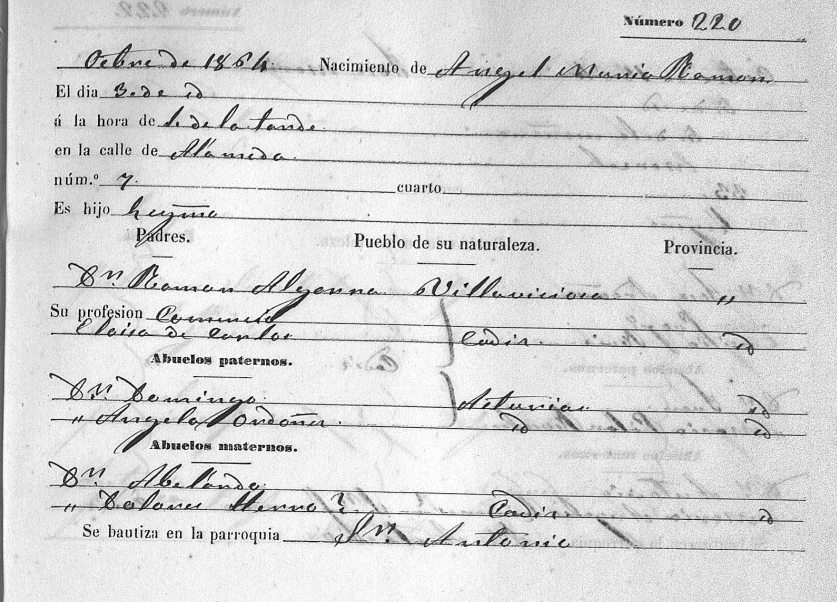 Número 220
Octbre de 1864. Nacimiento de Angel Maria Ramon
El dia 3. de id
á la hora de 1. de la tarde.
en la calle de Alameda.
núm.º 7. cuarto
Es hijo legmo
Padres. Pueblo de su naturaleza. Provincia.
Dn. Ramon Algarra Villaviciosa "
Su profesion Comercio
Eloisa de Carlos Cadiz. id
Abuelos paternos.
Dn. Domingo. Asturias id
" Angela Ordoñez. id id
Abuelos maternos.
Dn. Abelardo.
" Dolores Hierro Cadiz id
Se bautiza en la parroquia Sn. Antonio